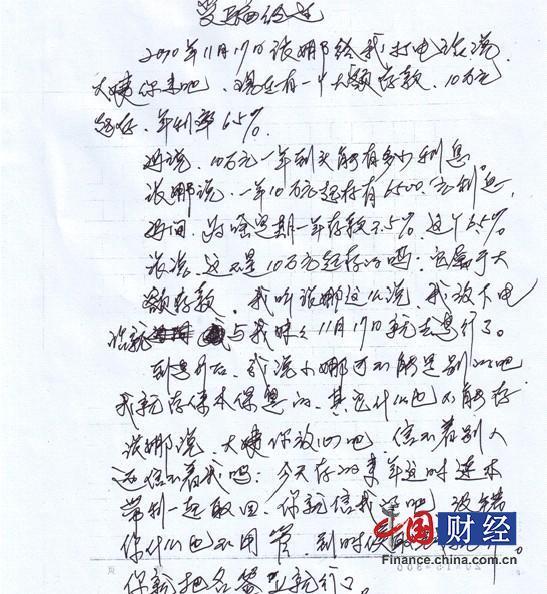 受骗经过
2010年11月17日张娜给我打电话说.
大姨你来吧.现在有一个大额存款.10万元
起存.年利率6.5%.
我说.10万元一年到头能有多少利息.
张娜说.一年10万元起存有6500.元利息.
我问.为啥定期一年存款2.5%.这个6.5%
张说.这不是10万元起存的吗.它属于大
额存款.我听张娜这么说.我放下电
话就 与我妹 11月17日就去 行了.
到 行后.我说小娜可不能是别的吧
我就存保本保息的.其它什么也不能存
张娜说.大姨你放心吧.信不着别人
还信不着我吗.今天存的来年这时连本
带利一起取回.你就信我的吧.没错
你什么也不用管.到时候取
你就把名签上就行了.
中国财经
Finance.china.com.cn